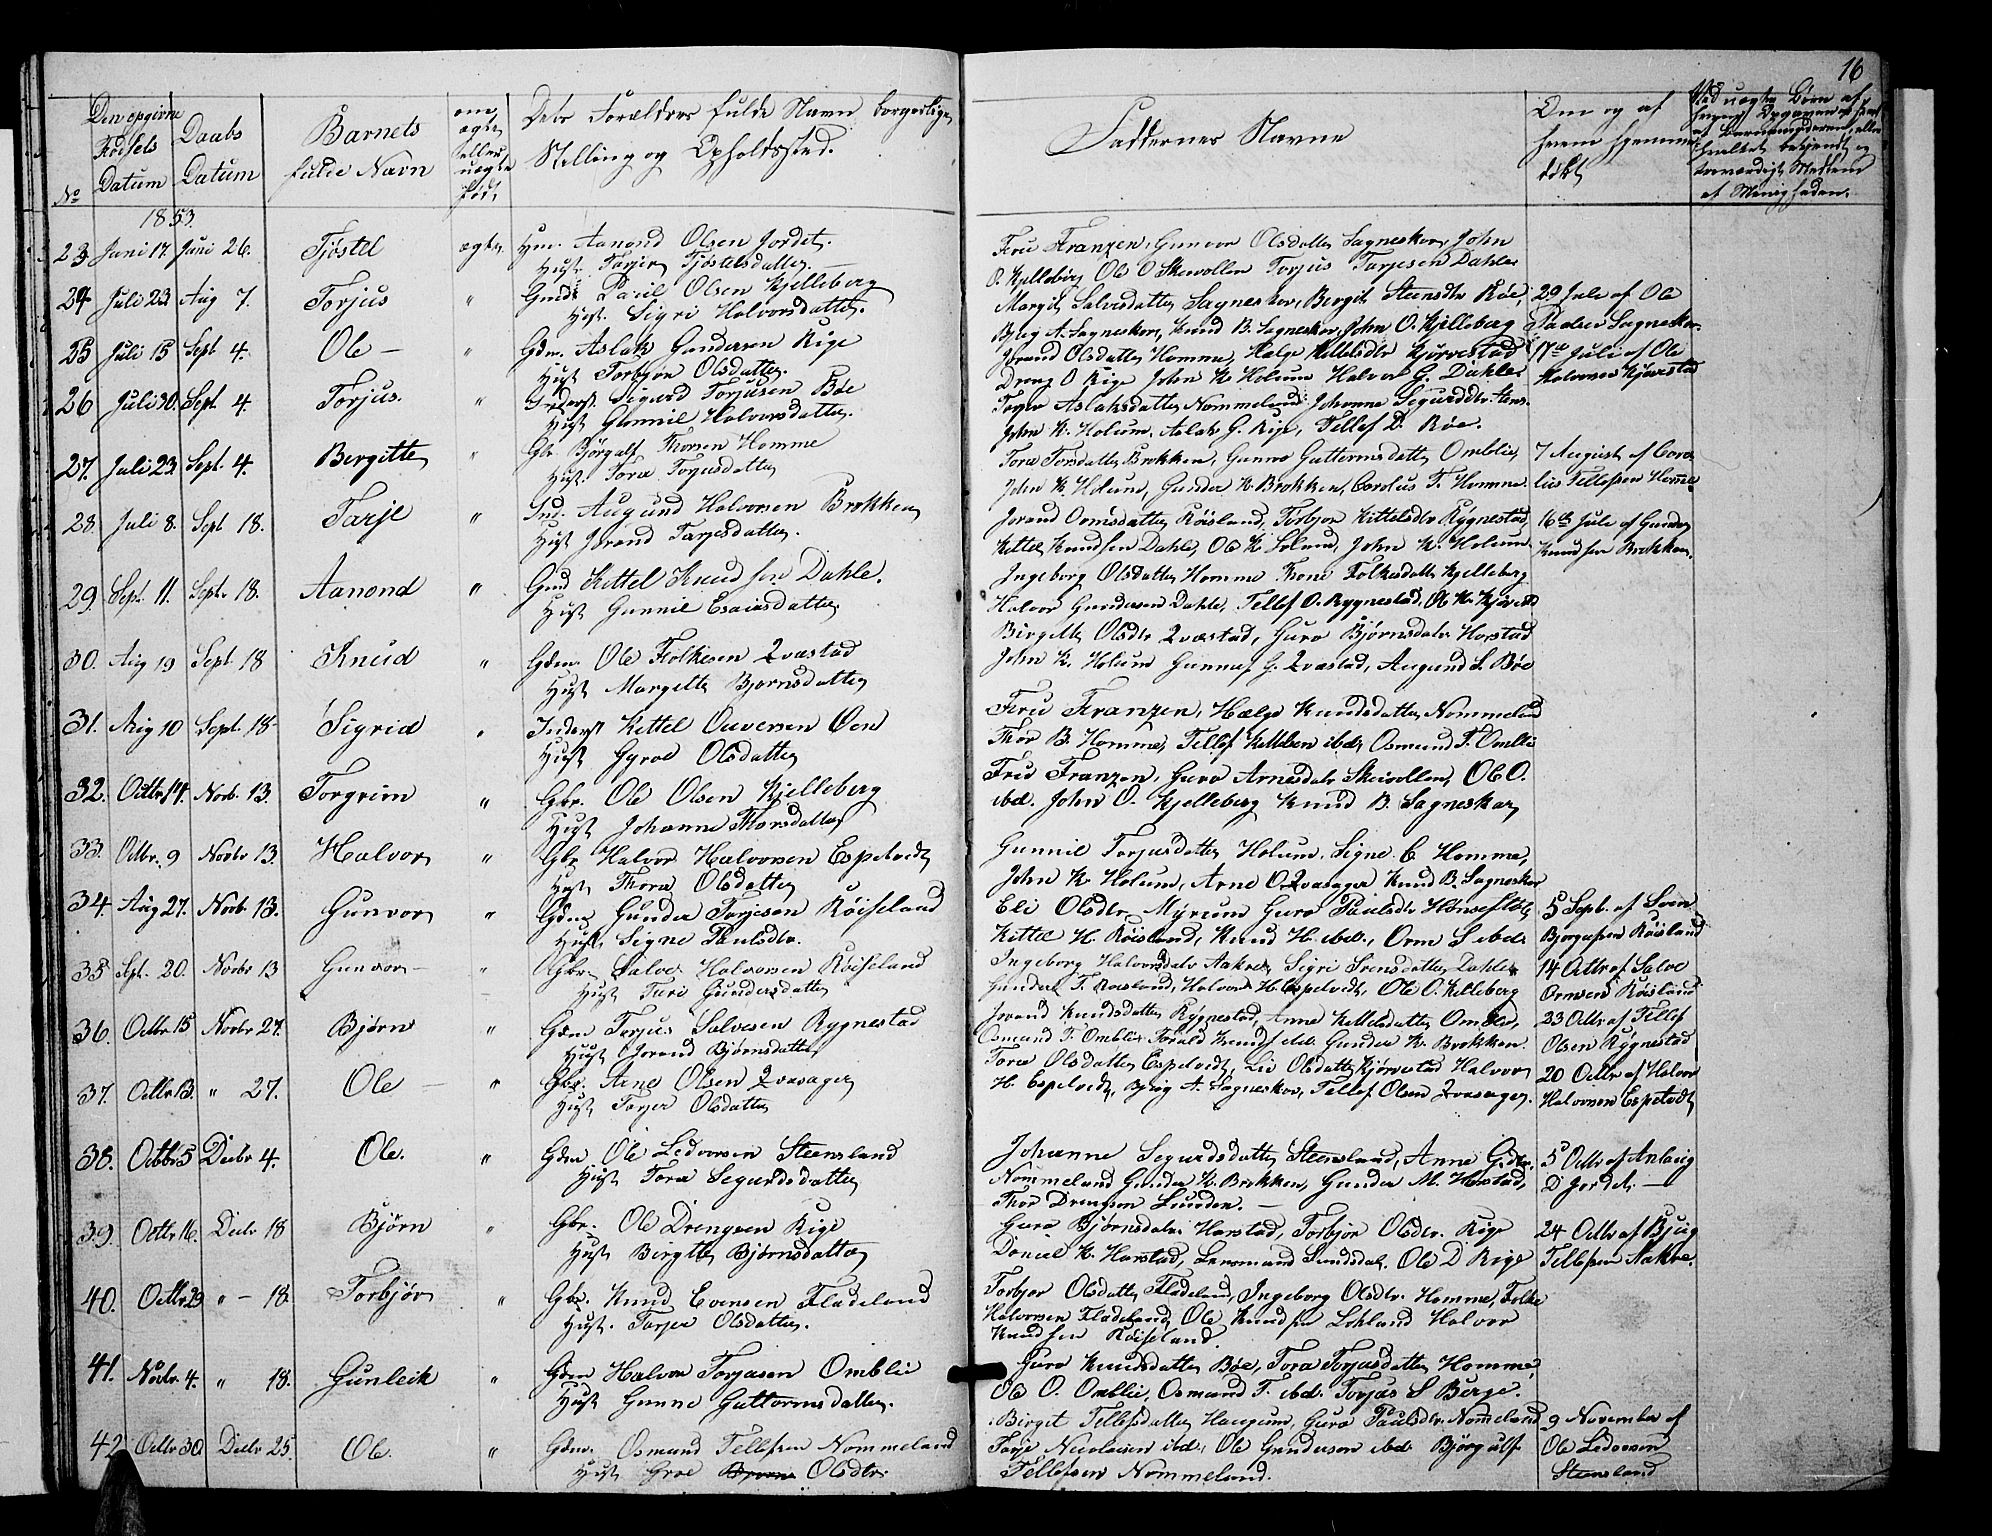 16
Den opgivne Fødsels Datum
Daabs Datum
Barnets fulde Navn
om ægte eller uægte født
Dets Forældres fulde Navn borgerlige
Stilling og Opholdssted.
Faddernes Navne
Om og af hvem hjemmedøbt
No
1853.
23 Juni 17. Juni 26. Tjøstel ægte Hm. Aanond Olsen Jordet.
Hust. Tarjer Tjøstelsdatter.
Fru Franzen, Gunvor Olsdatter Sagneskar, John
O. Kjelleberg Ole O Skevollen Torjus Tarjesen Dahle
24 Juli 23 Aug 7. Torjus " Gmd Paul Olsen Kjelleberg
Hust. Sigri Halvorsdatter.
Margit Salvesdatter Sagneskar, Bergit Steensdtr Røe, 29 Juli af Ole
Bjug A. Sagneskar, Knud B. Sagneskar, John O. Kjelleberg Paulsen Sagneskar.
25 Juli 15 Sept 4. Ole – " Gdm. Aslak Gundersen Rige
Hust Torbjør Olsdatter.
Jorand Olsdatter Homme, Hælge Kittelsdtr Kjørvestad 17de Juli af Ole
Dreng O Rige John K. Holum Halvor G. Dahle Halvorsen Kjørvestad
26 Juli 30. Sept. 4. Torjus. " Inderst. Sigurd Torjusen Bøe
Hust Gunnil Halvorsdatter.
Torjer Aslaksdatter Nommeland Johanne Segurdsdtr Stens.
John K. Holum, Aslak G. Rige, Tellef D. Røe.
27. Juli 23. Sept. 4. Bergitte " Gbr. Bjørgulf Thorsen Homme
Hust. Tora Torjusdatter
Tora Torsdatter Brokken, Gunne Guttormsdatter Omblie, 7 August af Caro
John K. Holum, Gunder K. Brokken, Carolus T. Homme. lus Tellefsen Homme
28. Juli 8. Sept 18. Tarje " Ind. Augund Halvorsen Brokken
Hust Jorand Tarjesdatter.
Jorand Ormsdatter Røisland, Torbjør Kittelsdtr Rygnestad, 16de Juli af Gunder
Kittel Knudsen Dahle, Ole K. Holum, John K. Holum. Knudsen Brokken.
29 Sept. 11. Sept. 18. Aanond " Gmd Kittel Knudsen Dahle.
Hust Gunnil Esaiasdatter
Ingeborg Olsdatter Homme Tone Folkesdatter Kjelleberg
Halvor Gundersen Dahle, Tellef O. Rygnestad, Ole K. Kjørvestad
30. Aug 19 Sept. 18 Knud " Gdm. Ole Folkesen Qvæstad
Hust Margitte Bjørnsdatter
Birgitte Olsdtr Qvæstad, Guro Bjørnsdatr Harstad
John K. Holum Gunnuf G. Qvæstad, Augund S. Bøe
31. Aug 10 Sept. 18 Sigrid " Inderst Kittel Ouversen Øen
Hust Gyroe Olsdatter
Fru Franzen, Hælge Knudsdatter, Nommeland
Thor B. Homme, Tellef Kittelsen ibd. Osmund T. Omblie
32. Octbr. 14. Novb. 13. Torgrim " Gbr. Ole Olsen Kjelleberg
Hust Johanne Thorsdatter
Fru Franzen, Guro Arnesdatr Skevollen, Ole O.
ibd. John O. Kjelleberg Knud B. Sagneskar
33. Octbr. 9 Novbr 13. Halvor " Gbr Halvor Halvorsen Espetvedt
Hust Thora Olsdatter
Gunnil Torjusdatter Holum, Signe C Homme,
John K. Holum, Arne O. Qvasager Knud B. Sagneskar
34. Aug 27. Novb. 13. Gunvor " Gdm Gunder Torjesen Røiseland
Hust. Signe Paulsdtr.
Eli Olsdtr Myrum Guro Paulsdtr 5 Sept. af Sven
Kittel H. Røisland, Knud H. ibd., Orm S ibd. Bjørgufsen Røisland
35 Spt. 20. Novbr 13 Gunvor – " Gbr Salve Halvorsen Røiseland
Hust Turi Gundersdatter
Ingeborg Halvorsdatr Aakre, Sigri Svensdatter Dahle 14 Octbr af Salve
Gunder T. Røisland, Halvor H. Espetvedt, Ole O. Kelleberg Ormsen Røisland
36. Octbr 15 Novbr 27. Bjørn " Gdm Torjus Salvesen Rygnestad
Hust Jorand Bjørnsdatter
Jorand Knudsdatter Rygnestad, Anne Kittelsdatter Omblie, 23 Octbr af Tellef
Osmund T. Omblie Torald Knuds ibd. Gunder K. Brokken. Olsen Rygnestad
37. Octbr 13. " 27. Ole – " Gbr. Arne Olsen Qvasager
Hust Tarjer Olsdatter
Tora Olsdatter Espetvedt, Liv Olsdatter Kjørvestad Halvor 20 Octbr af Halvor
H. Espetvedt, Bjug A. Sagneskar, Tellef Olsen Qvasager. Halvorsen Espetvedt
38. Octbr 5 Decbr 4. Ole. " Gdm Ole Ledvorsen Steensland
Hust Tora Segurdsdatter
Johanne Segurdsdatter Steensland, Anne Gdtr. 5 Octbr af Anlaug
Nommeland Gunder K. Brokken, Gunder M. Harstad, D Jordet. –
Thor Drengsen Lunden. –
39. Octbr 16. Decbr 18 Bjørn " Gbr. Ole Drengsen Rige
Hust Bergitte Bjørnsdatter
Guro Bjørnsdatr Harstad, Torbjør Olsdtr. Rige 24 Octbr af Bjug
Daniel K. Harstad, Lensmand Sundsdal, Ole D Rige Tellefsen Aakre.
40. Octbr 29 " – 18. Torbjør " Gbr. Knud Evensen Fladeland
Hust. Tarjer Olsdatter.
Torbjør Olsdatter Fladeland, Ingeborg Olsdtr. Homme, Folke
Halvorsen Fladeland, Ole Knudsen Løhland Halvor
Knudsen Røiseland
41. Novbr. 4. " 18. Gunleik " Gdm Halvor Torjusen Omblie
Hust Gunne Guttormsdatter.
Guro Knudsdatter Bøe, Tora Torjusdatter Homme,
Ole O. Omblie, Osmund T. ibd. Torjus S Berge.
42 Octbr 30 Decbr 25. Ole. " Gdm. Osmund Tellefsen Nommeland
Hust Groe Olsdtr.
Birgit Tellefsdatter Haugum, Guro Paulsdtr. Nomeland 9 November af
Tarje Nicolaisen ibd., Ole Gunderson ibd. Bjørgulf Ole Ledvorsen
Tellefsen Nommeland. Steensland